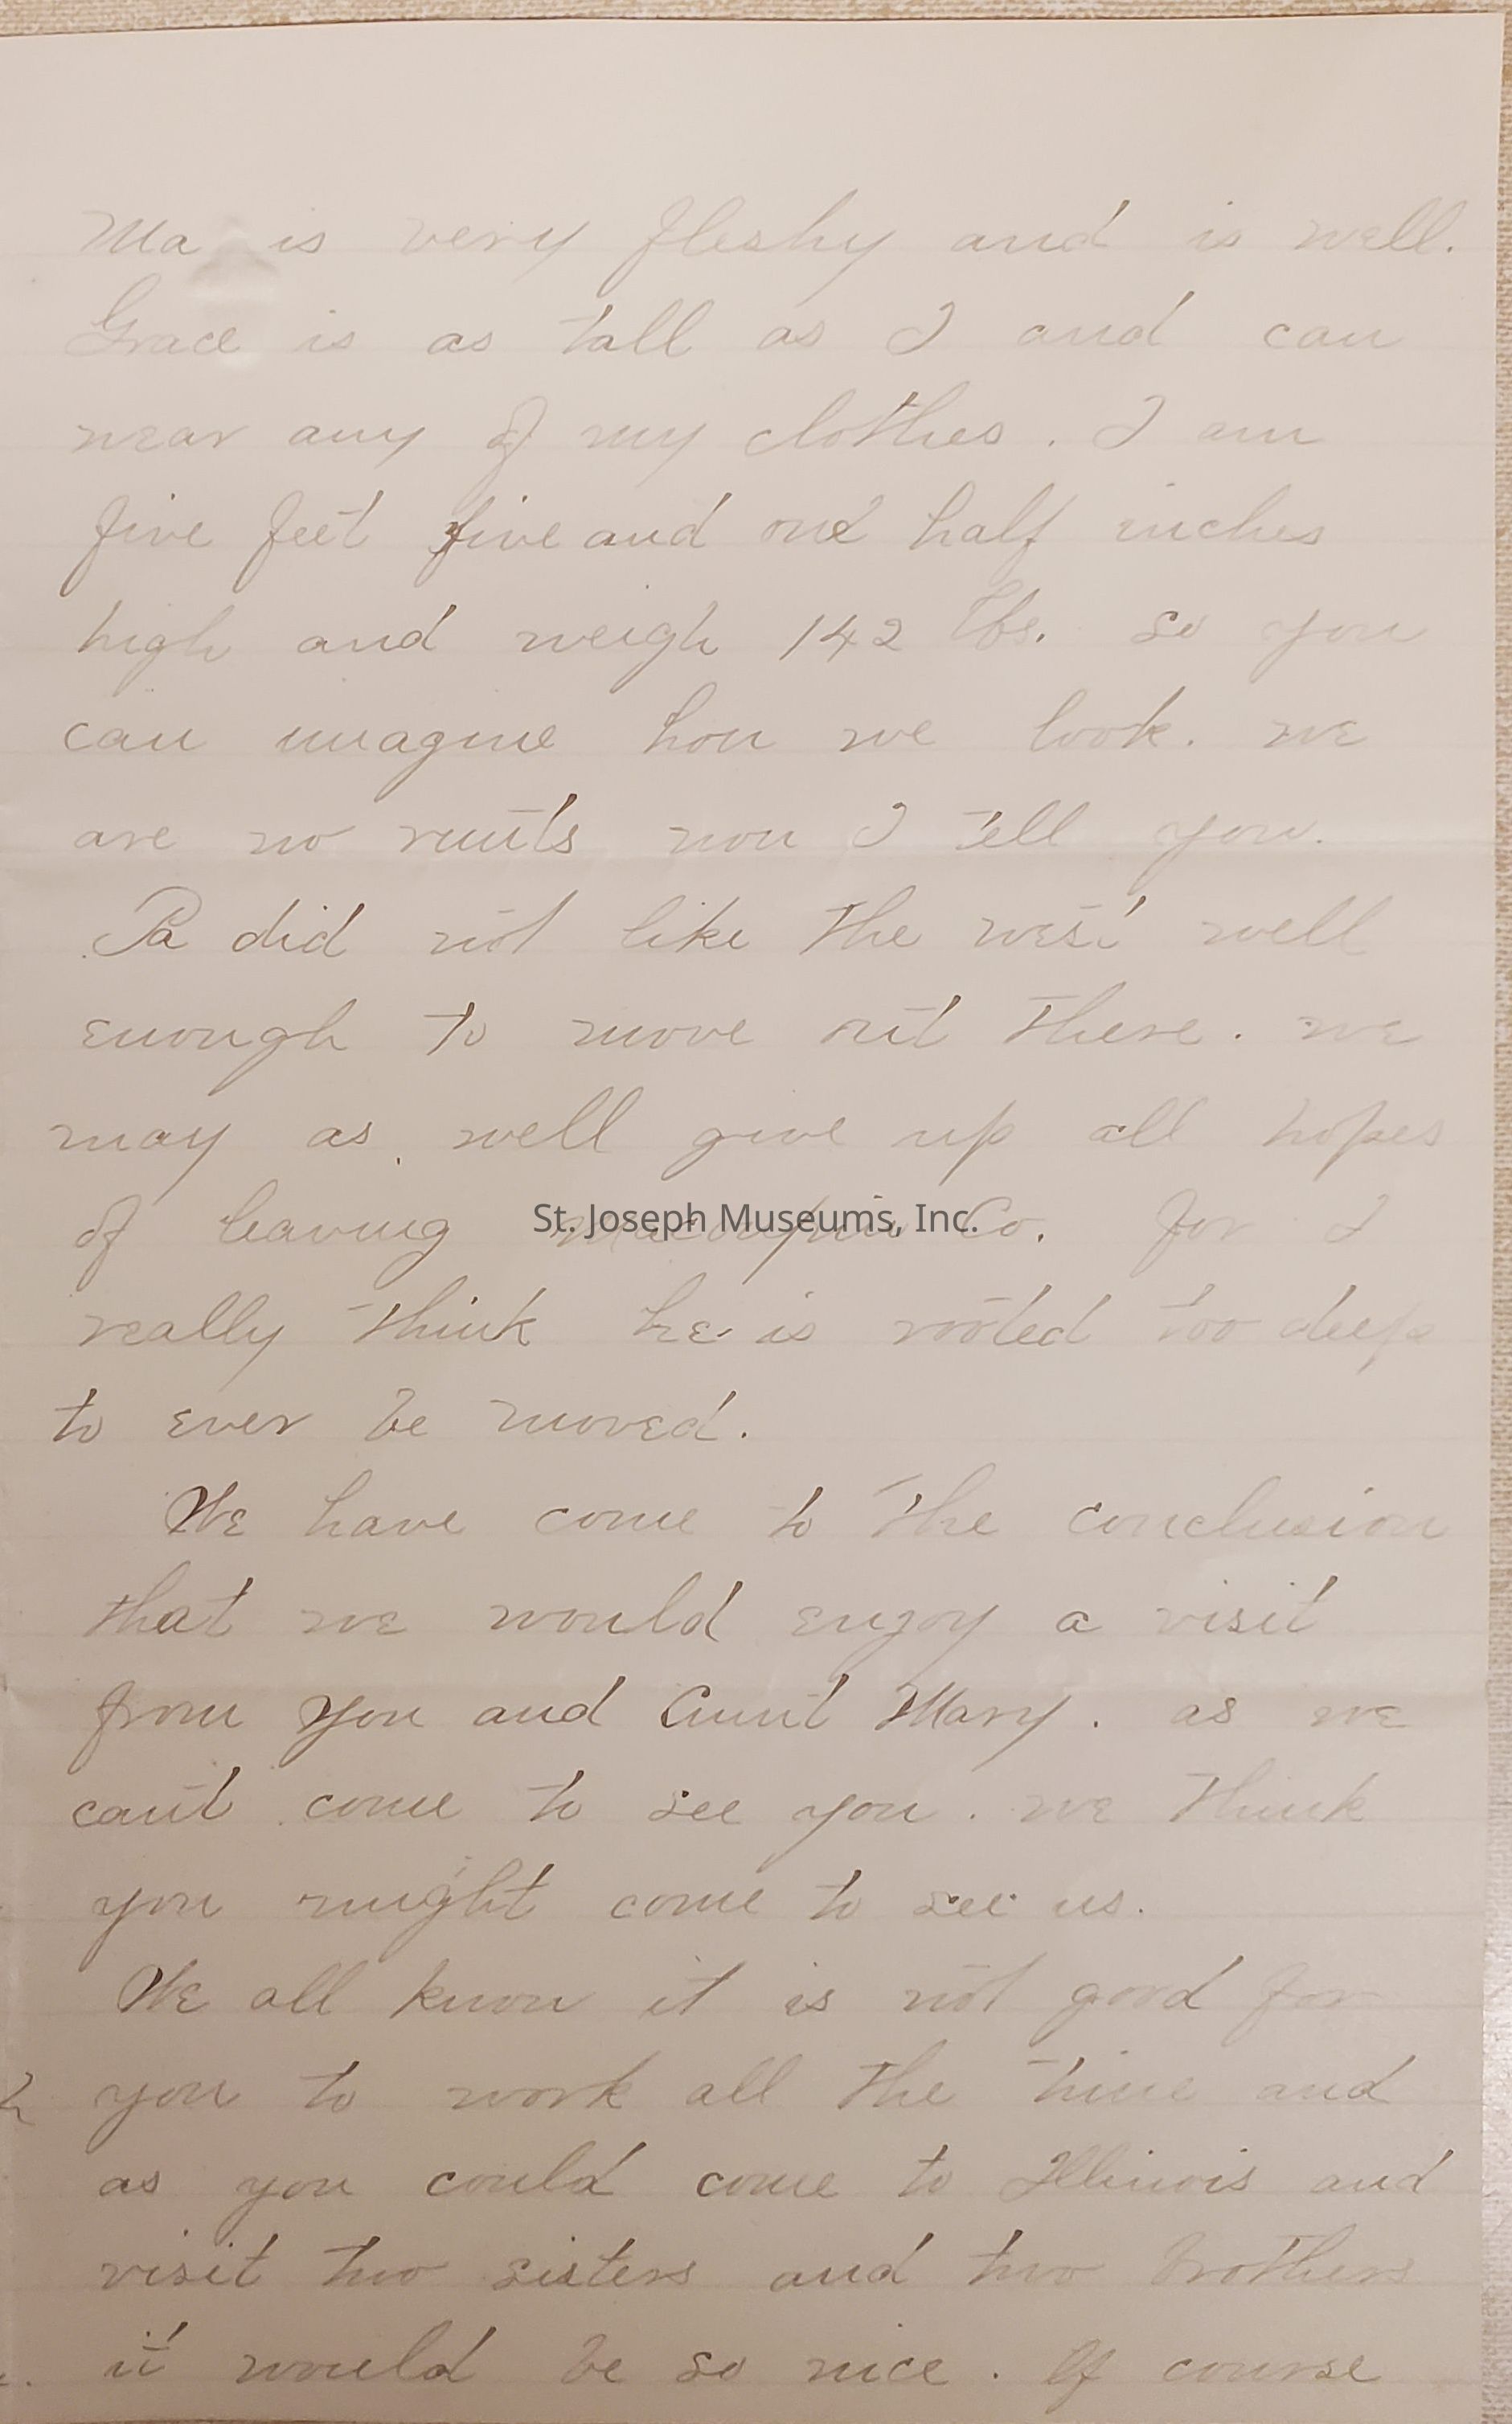 Ma is very fleshy and is well.
Grace is as tall as I and can
wear any of my clothes. I am
five feet five and one half inches
high and weigh 142 lbs. so you
can imagine how we look. we
are no runts now I tell you.
Pa did not like the west well
enough to move out there. we
may as well give up all hopes
of leaving Macoupin Co. for I
St. Joseph Museums, Inc.
really think he is rooted too deep
to ever be moved.
We have come to the conclusion
that we would enjoy a visit
from you and Aunt Mary. as we
can't come to see you. we think
you might come to see us.
We all know it is not good for
you to work all the time and
as you could come to Illinois and
visit two sisters and two brothers
it would be so nice. Of course